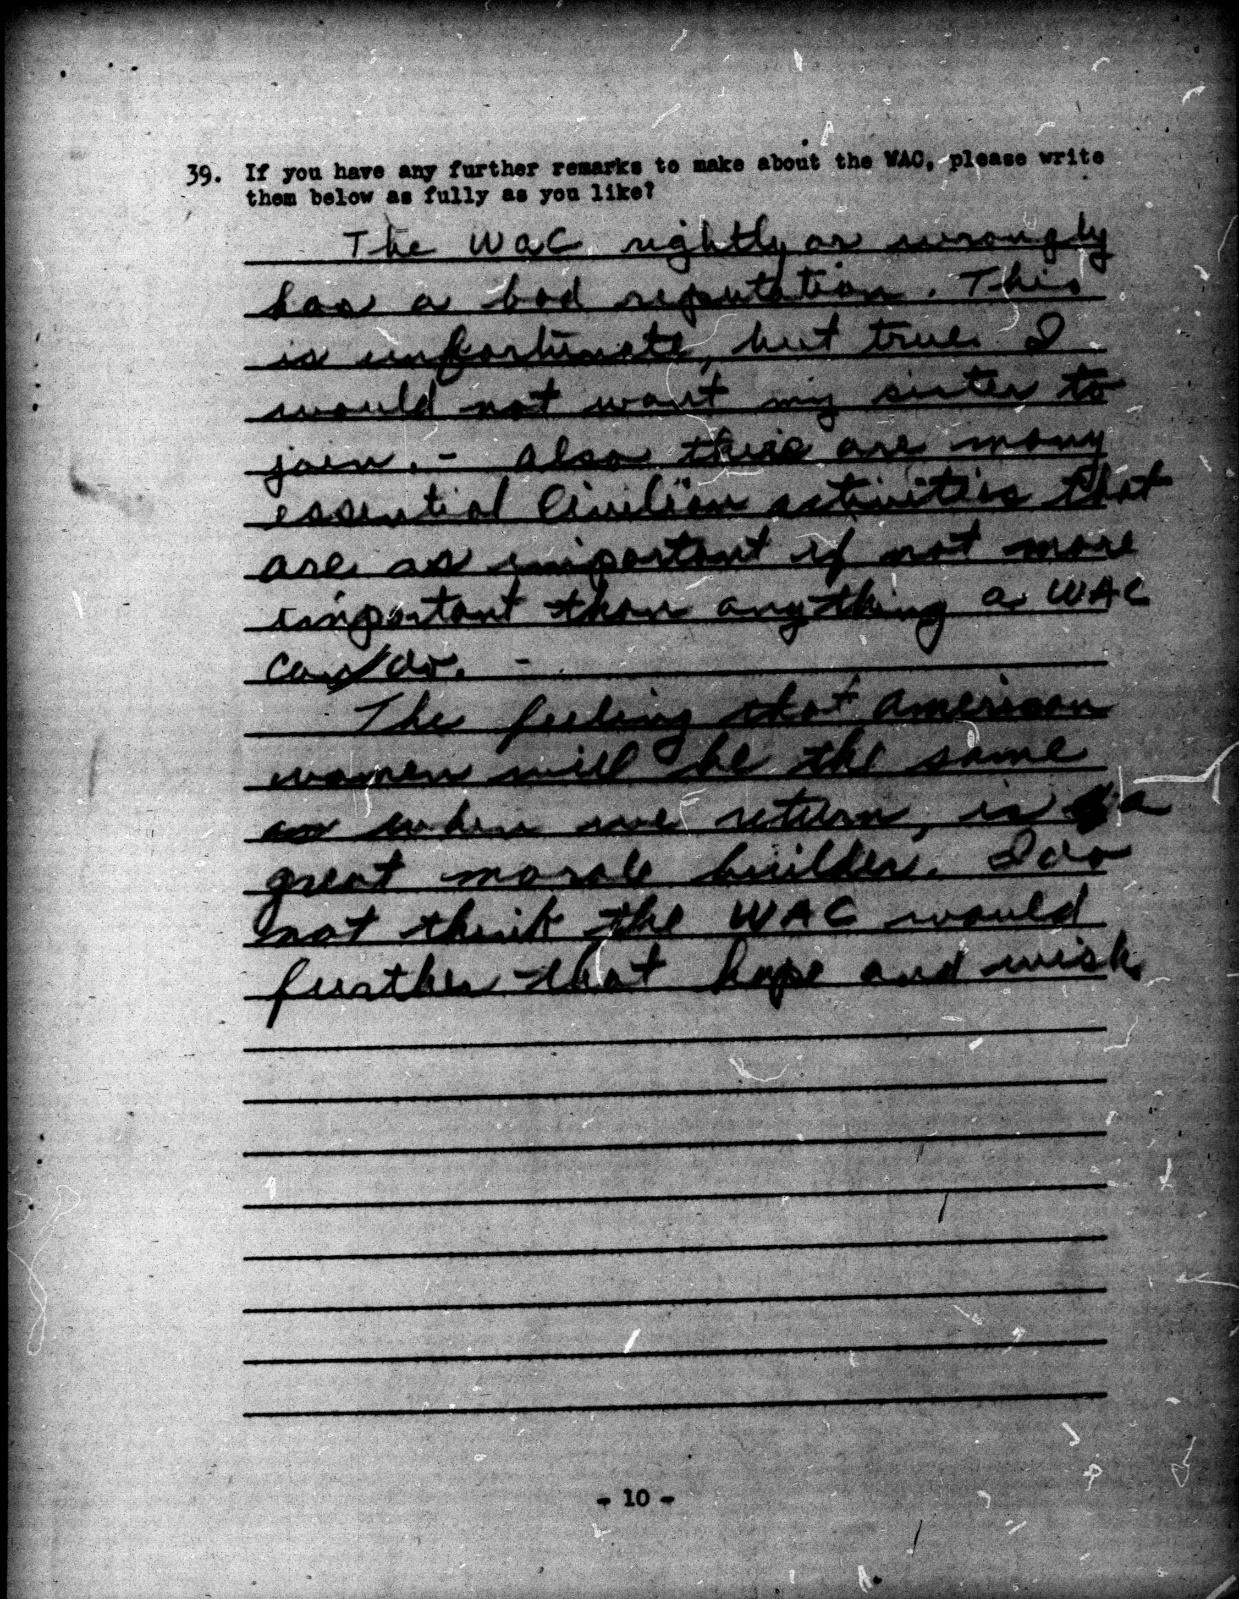 39. If you have any further remarks to make about the WAC, please write
them below as fully as you like?
The WaC rightly or wrongly
has a bad reputation. This
is unfortunate, but true. I
would not want my sister to
join. - Also there are many
essential Civilian activities that
are as important if not more
important than anything a WAC
can do. -
The feeling that American
women will be the same
as when we return, is a
great morale builder. I do
not think the WAC would
further that hope and wish.
- 10 -